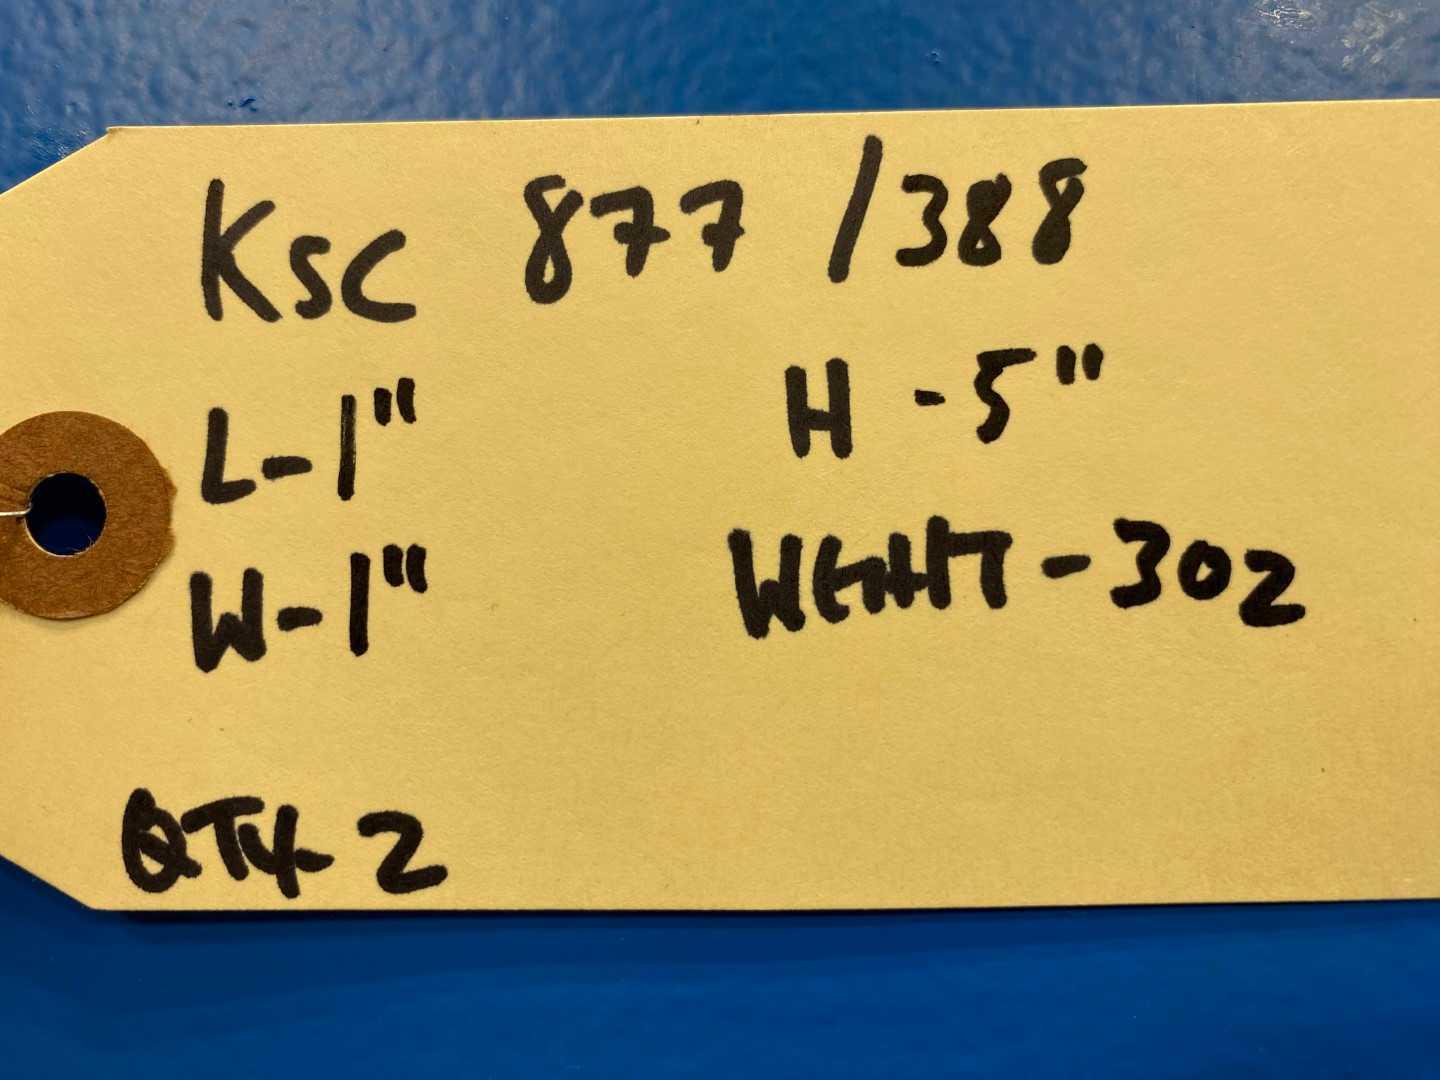 KSC 877 / 388
L-1" H-5"
W-1" WGHT-3OZ
QTY-2